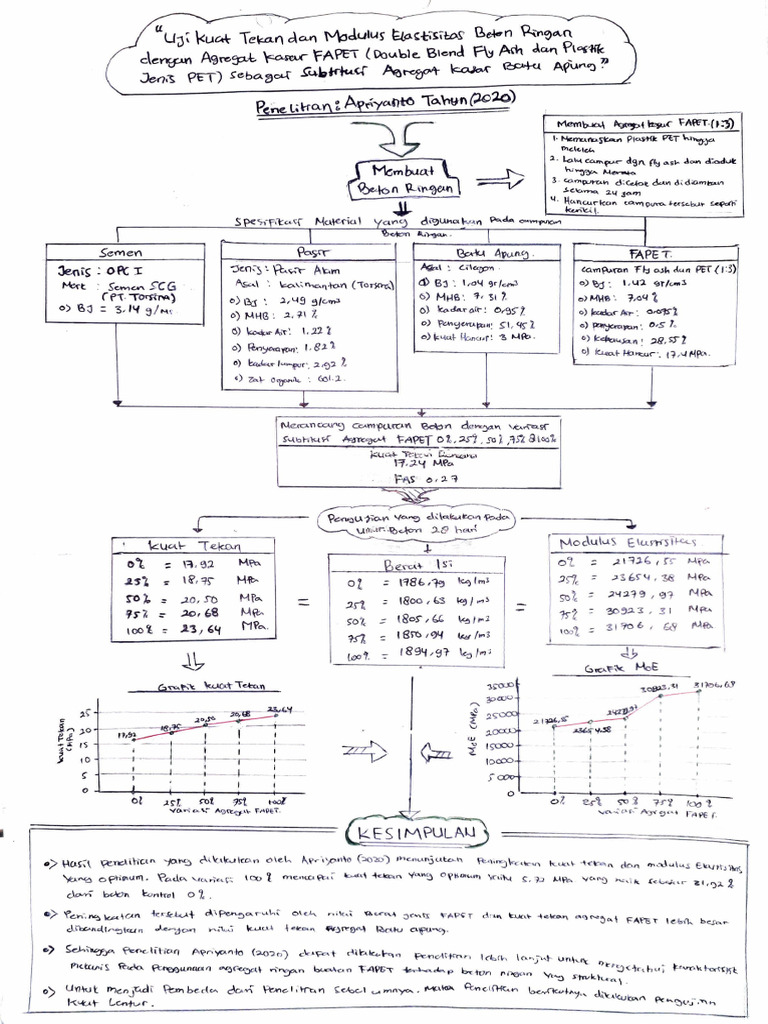 "Uji Kuat Tekan dan Modulus Elastisitas Beton Ringan
dengan Agregat Kasar FAPET (Double Blend Fly Ash dan Plastik
Jenis PET) sebagai Subtitusi Agregat Kasar Batu Apung"
Penelitian : Apriyanto Tahun (2020)
Membuat Agregat kasar FAPET (1:3)
1. Memanaskan Plastik PET hingga
meleleh
2. Lalu campur dgn fly ash dan diaduk
hingga Merata
3. campuran dicetak dan didiamkan
selama 24 jam
4. Hancurkan campura tersebut seperti
kerikil.
Membuat
Beton Ringan
Spesifikasi Material yang digunakan Pada campuran
Beton Ringan.
Semen
Jenis : OPC I
Merk : Semen SCG
(PT. Torsina)
o) BJ = 3,14 g/
Pasir
Jenis : Pasir Alam
Asal : kalimantan (Torsina)
o) BJ : 2,49 g/cm3
o) MHB : 2,71 %
o) kadar Air : 1,22 %
o) Penyerapan : 1.82 %
o) kadar lumpur : 2.92 %
o) Zat organik :
Batu Apung
Asal : Cilegon
o) BJ : 1,04 gr/cm3
o) MHB : 7,31 %
o) kadar air : 0,95 %
o) Penyerapan : 51,45 %
o) kuat Hancur : 3 MPa.
FAPET
campuran Fly ash dan PET (1:3)
o) BJ : 1,42 gr/cm3
o) MHB : 7,04 %
o) kadar Air : 0,075 %
o) penyerapan : 0.5 %
o) kehausan : 28,55 %
o) kuat Hancur : 17,4 MPa.
Merancang Campuran Beton dengan variasi
subtitusi Agregat FAPET 0%, 25%, 50%, 75% & 100%
kuat Tekan Rencana
17,24 MPa
FAS 0,27
Pengujian yang dilakukan Pada
umur Beton 28 hari
Kuat Tekan
0% = 17,92 MPa
25% = 18,75 MPa
50% = 20,50 MPa
75% = 20,68 MPa
100% = 23,64 MPa.
Berat Isi
0% = 1786,79 kg/m3
25% = 1800,63 kg/m3
50% = 1805,66 kg/m3
75% = 1850,94 kg/m3
100% = 1894,97 kg/m3
Modulus Elastisitas
0% = 21726,55 MPa
25% = 23654,38 MPa
50% = 24279,97 MPa
75% = 30923,31 MPa
100% = 31706,68 MPa
=
=
Grafik Kuat Tekan
kuat Tekan
(MPa)
25
20
15
10
5
0
17,92
18,75
20,50
20,68
23,64
0% 25% 50% 75% 100%
Variasi Agregat FAPET.
Grafik MoE
MoE (MPa)
35000
30000
25000
20000
15000
10000
5000
0
21726,55
23654,38
30923,31
31706,68
0% 25% 50% 75% 100%
Variasi Agregat FAPET.
KESIMPULAN
o) Hasil Penelitian yang dilakukan oleh Apriyanto (2020) menunjukan Peningkatan kuat tekan dan modulus Elastisitas
yang optimum. Pada variasi 100% mencapai kuat tekan yang optimum yaitu 5.72 MPa yang naik sebesar 31,92 %
dari beton kontrol 0%.
o) Peningkatan tersebut dipengaruhi oleh nilai Berat jenis FAPET dan kuat tekan agregat FAPET lebih besar
dibandingkan dengan nilai kuat tekan Agregat Batu apung.
o) Sehingga Penelitian Apriyanto (2020) dapat dilakukan Penelitian lebih lanjut untuk mengetahui karakteristik
mekanis Pada Penggunaan agregat ringan buatan FAPET terhadap beton ringan yang struktural.
o) Untuk menjadi Pembeda dari Penelitian sebelumnya. Maka Penelitian berikutnya dilakukan Pengujian
Kuat Lentur.